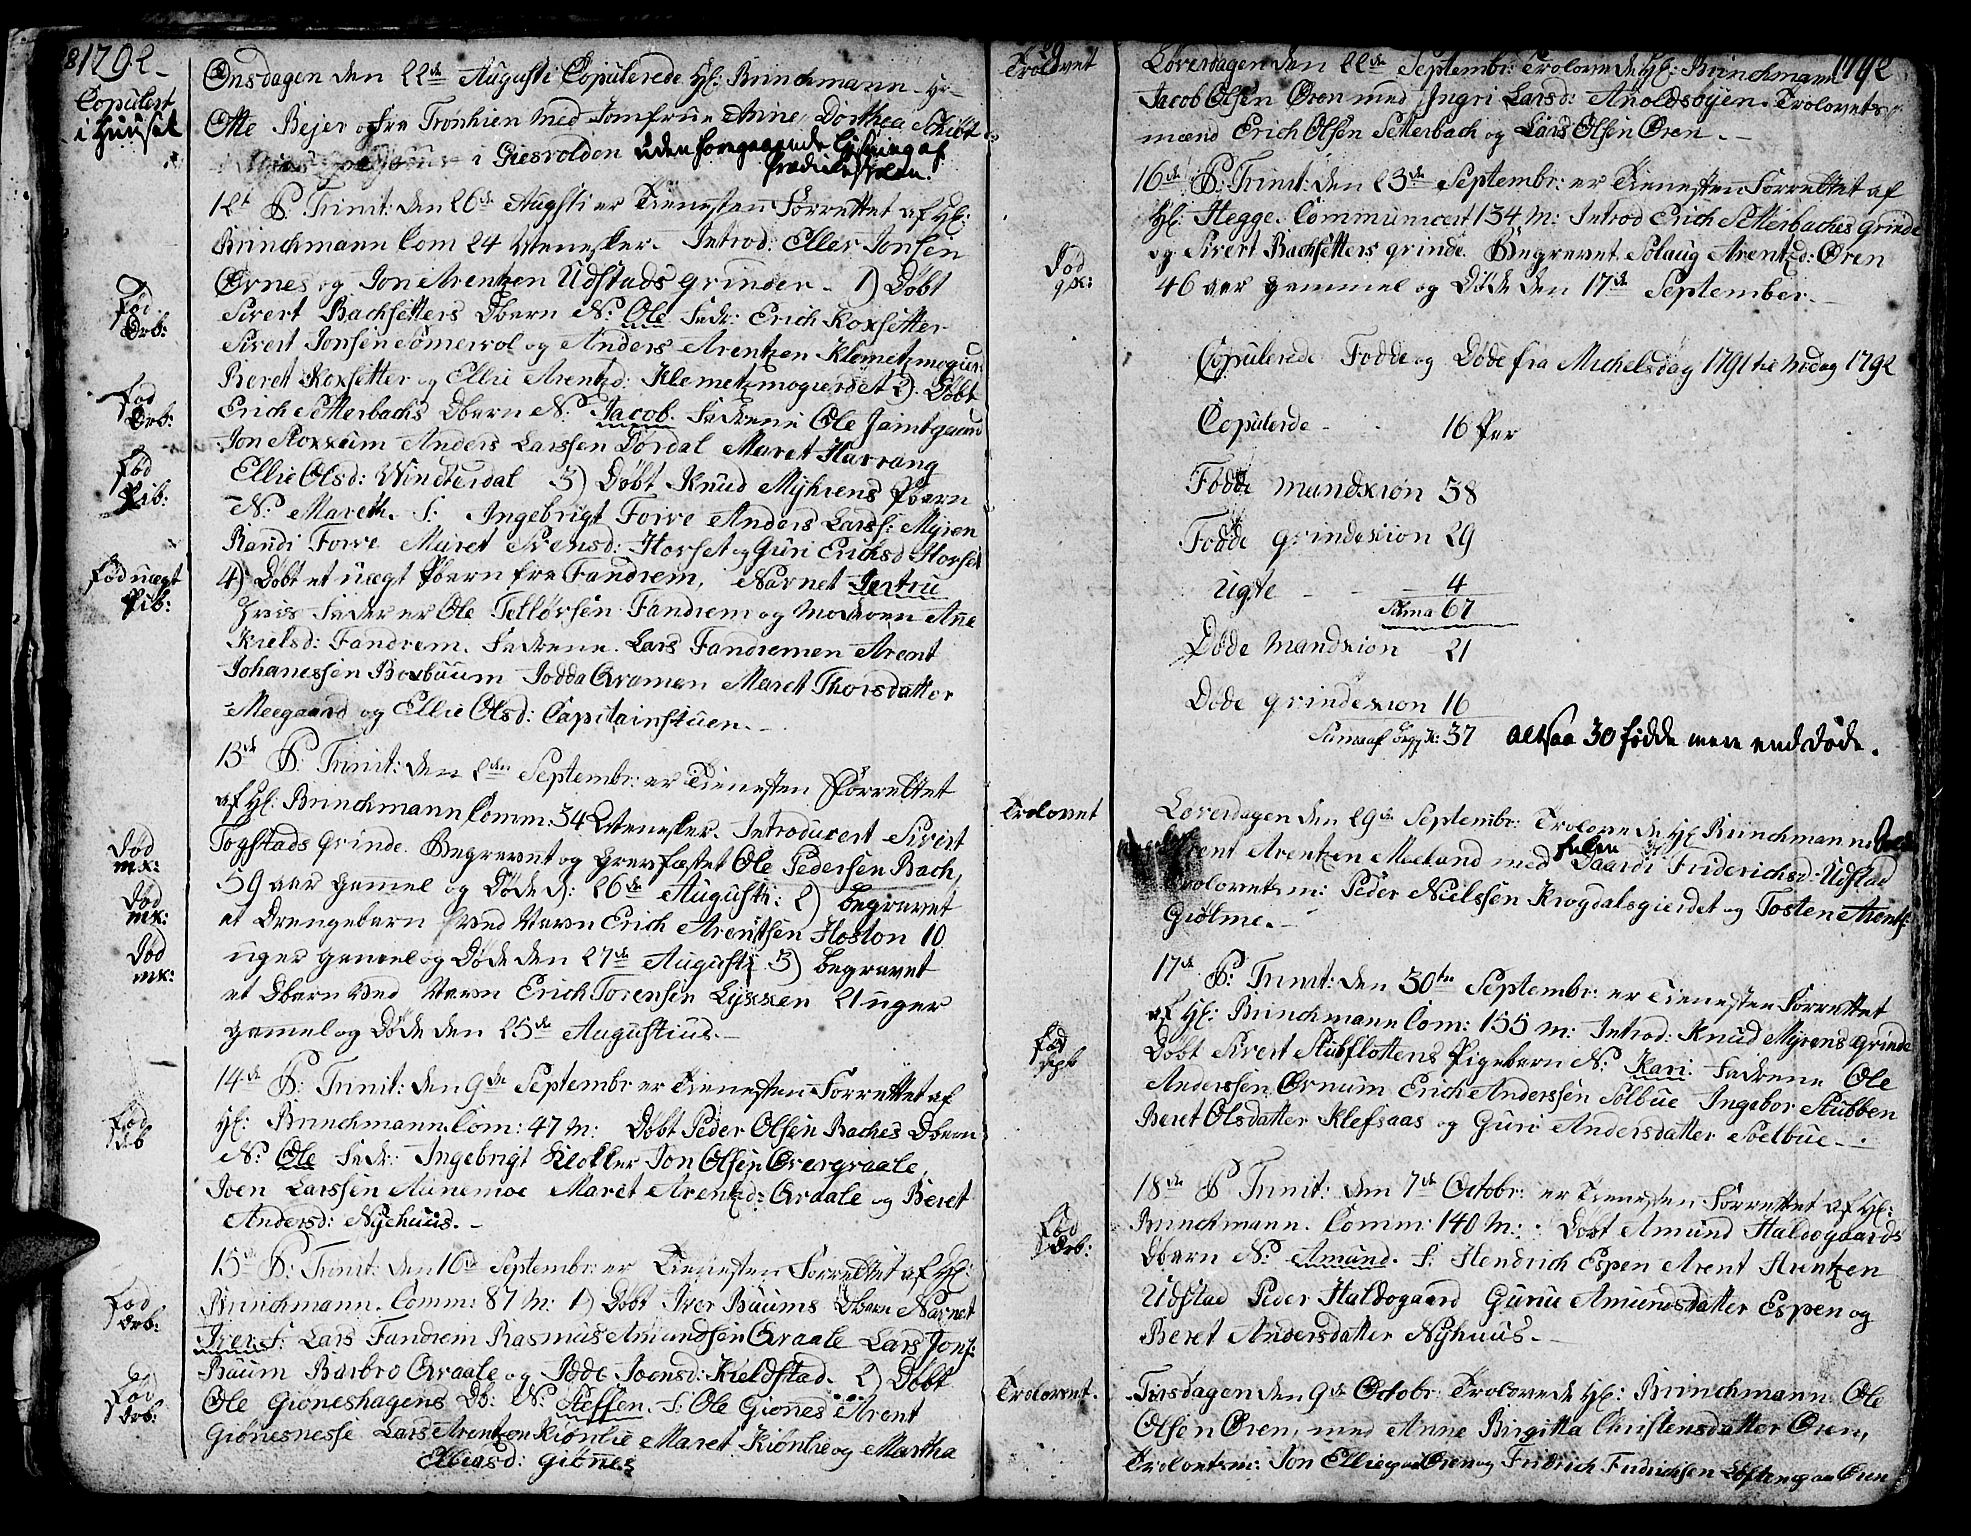 1792
Copulert
i Huuset
Onsdagen den 22de Augusti Copulerede Hl: Brinchmann Hr
Otte Bejer og fra Tronhiem med Jomfrue Anne Dorthea
i Giesvolden uden foregaaende Lysning af
Prædikestolen.
12t P: Trinit: den 26de Augsti er Tienesten Forrettet af Hl:
Brinchmann Com 24 Menesker. Introd: Eller Jonsen
Ørnes og Jon Arentzen Udstads grinder. 1) Døbt
Fød
Drb:
Sivert Bachsetters Dbarn N: Ole Fadr: Erich Koxsetter
Sivert Jonsen Somervol og Anders Arentzen Klometzmogier
Beret Koxsetter og Ellie Arentzd: Klemetzmogierdet 2) Døbt
Fød
Drb:
Erich Setterbachs Dbarn N: Jacob. Fadrene Ole Jamtgaard
Jon Stoxeum Anders Larssen Dørdal Maret Harrang
Ellie Olsd: Windterdal 3) Døbt Knud Myhrens Pbarn
Fød
Pib:
N: Mareth. F: Ingebrigt Forve Anders Larss: Myren
Randi Forve Maret Svensd: Horset og Guri Erichsd Horset
Fød uægt
Pib:
4) Døbt et uægt Pbarn fra Fandrem, Navnet Jertru
hvis Fader er Ole Tellørsen Fandrem og Moderen Ane
Kielsd: Fandrem. Fadrene. Lars Fandremen Arent
Johanessen Boxbuum Jodda Qvamen Maret Thorsdatter
Meegaard og Ellie Olsd: Capitainstuen.
13de P: Trinit: den 2den Septembr: er Tienesten Forrettet
af Hl: Brinchmann Comm: 34 Menesker. Introducert Sivert
Død
mk:
Togstads Grinde. Begravet og Gravfæstet Ole Pedersen Bach,
59 aar gamel og Døde d: 26de Augusti: 2) begravet
Død
mk:
et Drengebarn ved Navn Erich Arentsen Hoston 10
uger gamel og Døde den 27de Augusti 3) begravet
Død
mk:
et Dbarn ved Navn Erich Torensen Lyxxen 21 uger
gamel og Døde den 25de Augustius.
14de P: Trinit: den 9de Septembr er Tienesten Forrettet af
Hl: Brinchmann Com: 47 M: Døbt Peder Olsen Baches Dbarn
Fød
Db
N: Ole Fadr: Ingebrigt Kloller Jon Olsen Overgraale,
Joen Larssen Aunemoe Maret Arentzd: Qvaale og Beret
Andersd: Nyehuus.
15de P: Trinit: den 16de Septembr: er Tienesten Forrettet af Hl:
Fød
Drb:
Brinchmann. Comm: 87 M: 1) Døbt Iver Buums Dbarn Navnet
Iver F: Lars Fandrem Rasmus Amundsen Qvaale Lars Jons:
Buum Barbro Qvaale og Jode Joensd: Kieldstad. 2) Døbt
Fød
Drb:
Ole Giøneshagens Db: N: Steffen. F: Ole Giønnes Arent
Giønesnesse Lars Arentzen Kiønlie Maret Kiønlie og Martha
Elliesd: Giønes
29
1792
Trolovet
Løverdagen den 22de Septembr: Trolovede Hl: Brinchmann
Jacob Olsen Øren med Ingri Larsd: Anoldsøyen. Trolovets
mænd Erich Olsen Setterbach og Lars Olsen Øren.
16de P: Trinit: den 23de Septembr: er Tienesten Forrettet af
Hl: Hegge. Communicert 134 M: Introd Erich Setterbaches Grinde
og Sivert Bachsetters grinde. Begravet Solaug Arentzd: Øren
Død
qk:
46 aar gammel og Døde den 17de September.
Copulerede Fødde og Døde fra Michelsdag 1791 til Mdag 1792
Copulerde 16 Par
Fødde mandkiøn 38
Fødde grindekiøn 29
Ugte 4
Suma 67
Døde Mandkiøn 21
Døde grindekiøn 16
Suma af begge K: 37 altsaa 30 fødde mere end Døde.
Trolovet
Løverdagen den 29de Septembr: Trolovede Hl Brinchmann
Arent Arentzen Meeland med Saardi Friderichsd: Udstad
Trolovetsm: Peder Nielssen Krogdalsgierdet og Tosten Arents:
Giølme.
17de P: Trinit: den 30te Septembr: er Tienesten Forrettet
af Hl: Brinchmann Com: 155 M: Introd: Knud Myrens Grinde
Fød
Døbt Sivert Stubflottens Pigebarn N: Kari. Fadrene Ole
Anderssen Ørnum Erich Anderssen Solbue Ingebor Stubben
Beret Olsdatter Klefsaas og Guri Andersdatter Soelbue.
18de P Trinit: den 7de Octobr: er Tienesten Forrettet af Hl:
Fød
Drb:
Brinchmann. Comm: 140 M: Døbt Amund Haldogaards
Dbarn N: Amund. F: Hendrich Espen Arent Arentzen
Udstad Peder Haldogaard Gurue Amundsdatter Espen og
Beret Andersdatter Nyhuus.
Trolovet.
Tirsdagen den 9de Octobr: Trolovede Hl: Brinchmann Ole
Olsen Øren, med Anne Birgitta Christensdatter Øren,
Trolovetsm: Jon Ellie paa Øren og Fridrich Fridrichsen Løften paa Øren